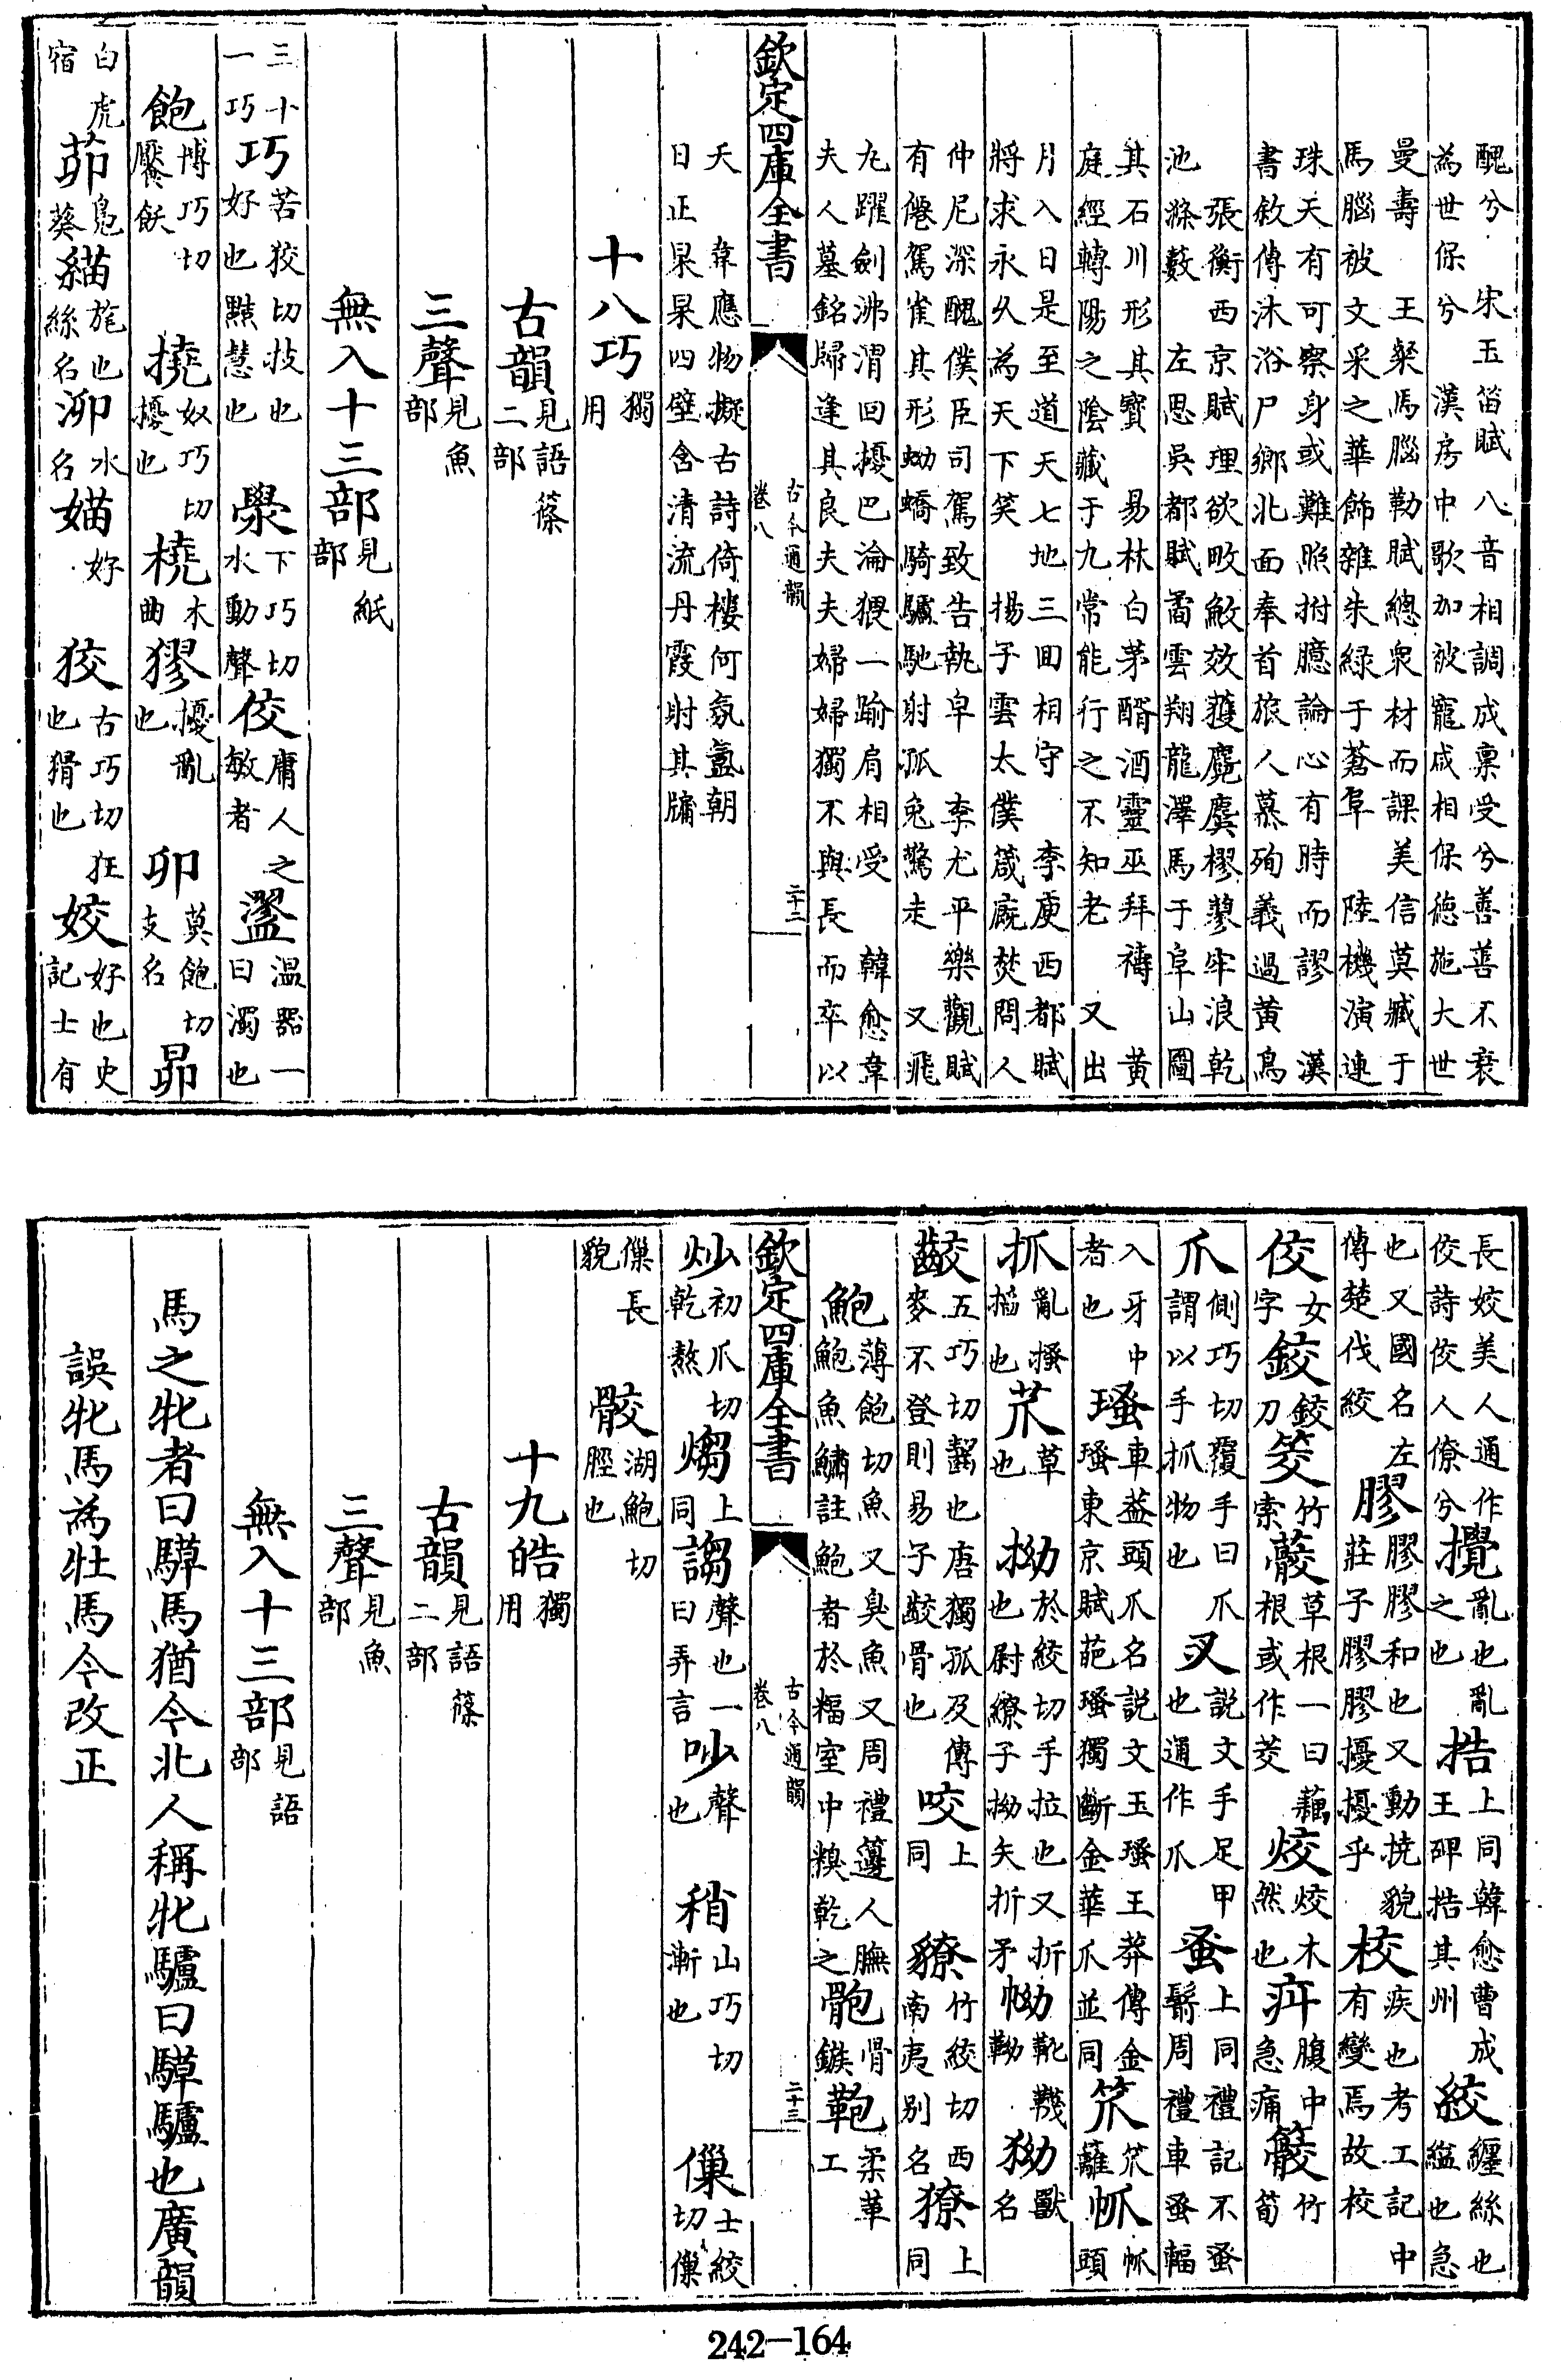 醜兮 宋玉笛賦八音相調成稟受兮善善不衰
為世保兮 漢房中歌加被寵咸相保德施大世
曼壽 王粲馬腦勒賦總衆材而課美信莫臧于
馬腦被文采之華飾雜朱綠于蒼阜 陸機演連
珠天有可察身或難照拊臆論心有時而謬 漢
書敘傳沐浴尸鄉北面奉首旅人慕殉義過黄鳥
張衡西京賦理欲畋效獲麑麌樛蓼窂浪乾
池滌藪 左思吳都賦畱雲翔龍澤馬于阜山圖
其石川形其寶 易林白茅醑酒靈巫拜禱 黄
庭經轉陽之陰藏于九常能行之不知老 又出
月入日是至道天七地三回相守 李庾西都賦
將求永久為天下笑 揚子雲太僕箴廐焚問人
仲尼深醜僕臣司駕致告執皁 李尤平樂觀賦
有僊駕雀其形蚴蟉騎驢馳射孤兔驚走 又飛
九躍劍沸渭回擾巴渝猥一踰肩相受 韓愈韋
夫人墓銘歸逢其良夫夫婦婦獨不與長而卒以
欽定四庫全書 古今通韻 卷八 二十二
天 韋應物擬古詩倚樓何氛氳朝
日正杲杲四壁含清流丹霞射其牖
十八巧 獨用
古韻 見語篠二部
三聲 見魚部
無入十三部 見紙部
三十一巧 巧 苦狡切技也好也黠慧也 澩 下巧切水動聲 佼 庸人之敏者 㿧 温器一曰濁也
飽 博巧切饜飫 撓 奴巧切擾也 橈 木曲 獿 擾亂也 卯 莫飽切支名 昴
白虎宿 茆 鳧葵 緢 旄也絲名 泖 水名 媌 好 狡 古巧切狂也猾也 姣 好也史記士有
長姣美人通作佼詩佼人僚兮 攪 亂也亂之也 捁 上同韓愈曹成王碑捁其州 絞 纏絲也縊也急
也又國名左傳楚伐絞 膠 膠膠和也又動撓貌莊子膠膠擾擾乎 校 疾也考工記中有變焉故校
佼 女字 鉸 鉸刀 筊 竹索 藃 草根一曰藕根或作茭 烄 烄木然也 疞 腹中急痛 䈰 竹筍
爪 側巧切覆手曰爪謂以手抓物也 叉 説文手足甲也通作爪 蚤 上同禮記不蚤鬋周禮車蚤輻
入牙中者也 瑵 車葢頭爪名説文玉瑵王莽傳金瑵東京賦葩瑵獨斷金華爪並同 笊 笊籬 㧓 㧓頭
抓 亂搔搯也 茮 草也 拗 於絞切手拉也又折也尉繚子拗矢折矛 㑃 靴靿韈 狕 獸名
齩 五巧切齧也唐獨孤及傳麥不登則易子齩骨也 咬 上同 䝤 竹絞切西南夷别名 獠 上同
鮑 薄飽切魚又臭魚又周禮籩人膴鮑魚鱐註鮑者於糗室中糗乾之 骲 骨鏃 鞄 柔革工
欽定四庫全書 古今通韻 卷八 二十三
炒 初爪切乾熬 煼 上同 謅 聲也一曰弄言 吵 聲也 稍 山巧切漸也 僺 士絞切僺
僺長貌 骹 湖鮑切脛也
十九皓 獨用
古韻 見語篠二部
三聲 見魚部
無入十三部 見語部
馬之牝者曰騲馬猶今北人稱牝驢曰騲驢也廣韻
誤牝馬為牡馬今改正
242-164